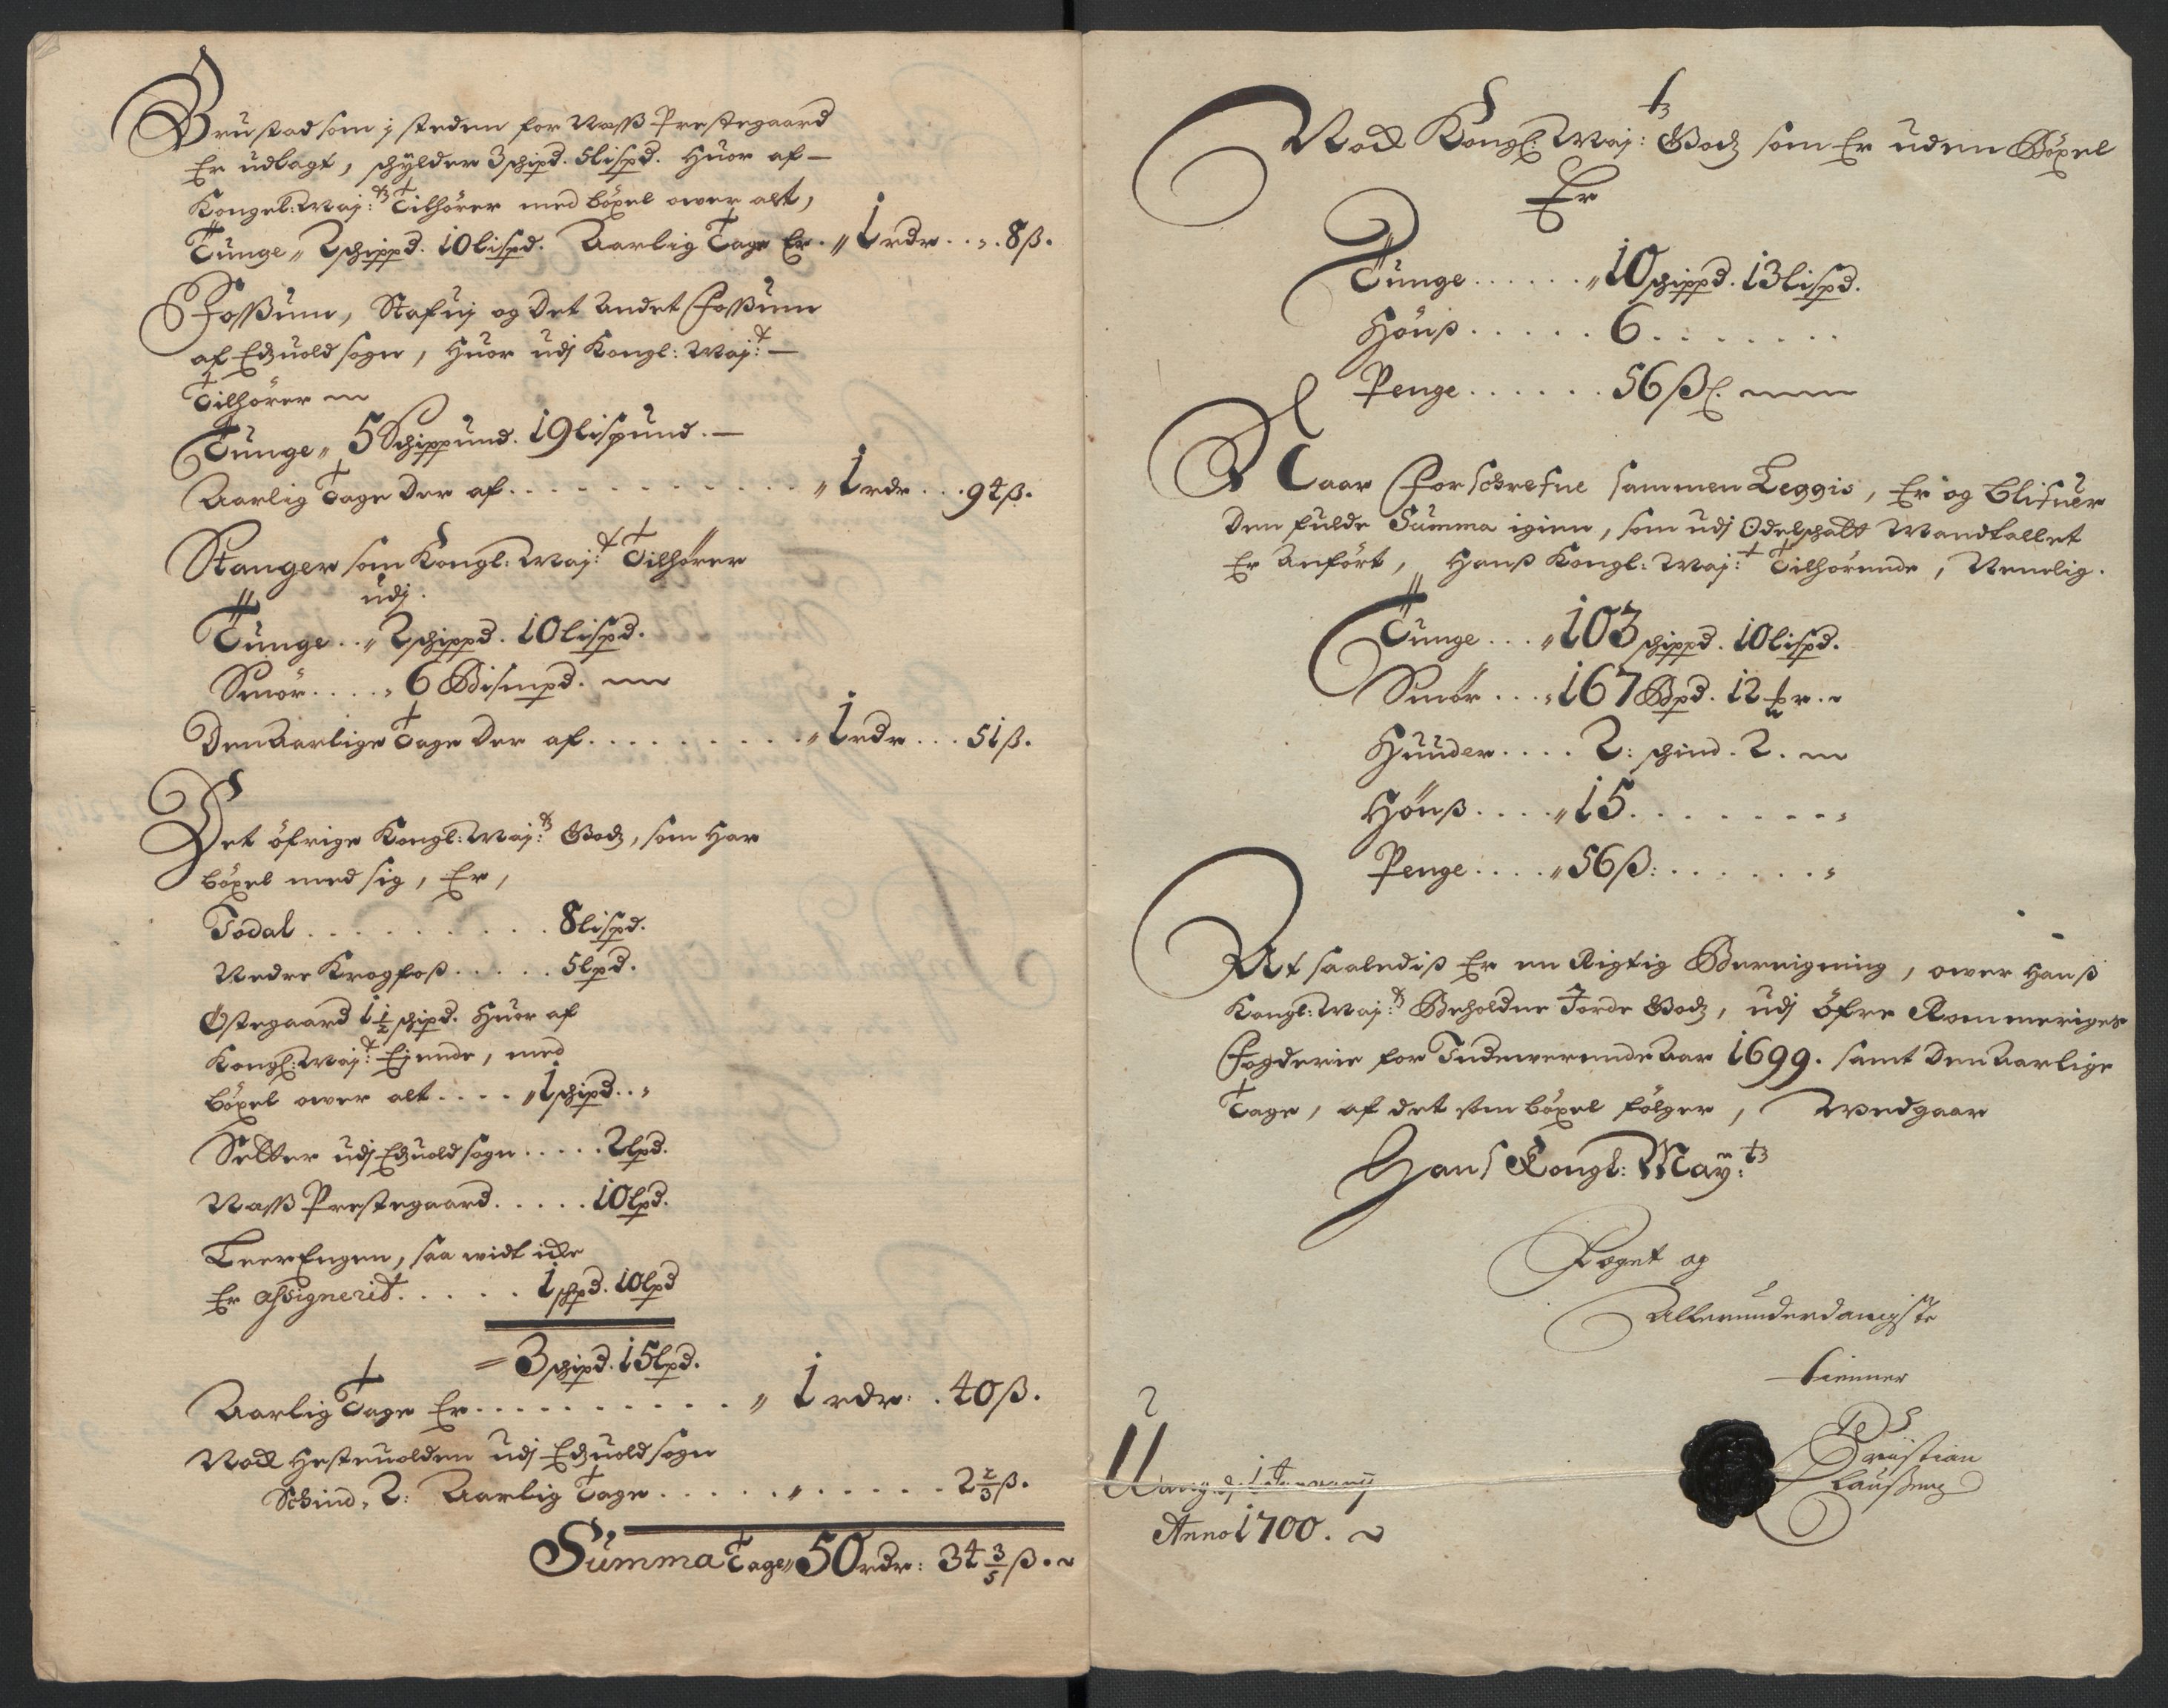 Brustad som j steden for Næss Prestegaard
Er udlagt, schylder 3 schipd. 5 lispd. Huor af —
Kongel: Maj:ts Tilhører med böxel ower alt,
Tunge „ 2 schippd. 10 lispd. Aarlig Tage Er. „ 1 rdr . . „ . 8 ß.
Fossum, Stafnj og det andet Fossum
af Edzuold sogn, Huor udj Kongl: Maj:t —
Tilhører
Tunge „ 5 Schippund. 19 lispund. —
Aarlig Tage der af . . . . . . . . „ 1 rdr . . . 94 ß.
Stanger som Kongl: Maj:t Tilhører
udj.
Tunge . . „ 2 schippd. 10 lispd.
Smör . . . . „ 6 Bismpd.
Den Aarlige Tage der af . . . . . . . . „ 1 rdr . . . 51 ß.
Det öfrige Kongl: Maj:ts Godz, som har
böxel med sig, Er,
Todal . . . . . . . . 8 lispd.
Nedre Krogfoss . . . . . 5 lpd.
Östegaard 1 1/2 schipd. Huor af
Kongl: Maj:t Ejende, med
böxel ower alt . . . . „ 1 schipd . . „
Setter udj Edzuold sogn . . . . . 2 lpd.
Næss Prestegaard . . . . . 10 lpd.
Leer Engen, saa widt icke
Er assignerit . . . . . 1 schpd. 10 lpd
= 3 schipd. 15 lpd.
Aarlig Tage Er . . . . . . . . . „ 1 rdr: . 40 ß.
Nock Hesteuolden udj Edzuold sogn
Schind „ 2: Aarlig Tage . . . . . „ . . . . . 2 2/3 ß.
Summa Tage „ 50 rdr: 34 3/5 ß.
Nock Kongl: Maj:ts Godz som Er uden Böxel
Er
Tunge . . . . . . „ 10 schippd. 13 lispd.
Hönß . . . . . 6 . . . . . . .
Penge . . . . . . 56 ßl.
Naar Forschrefne sammen Leggis, Er og blifuer
den fulde Summa igien, som udj Odelschatt Mandtallet
Er Anfört, Hans Kongl: Maj:t Tilhörende, Nemlig.
Tunge . . . „ 103 schippd. 10 lispd.
Smör . . . „ 167 Bpd. 12 mr.
Huuder . . . . 2: schind. 2.
Hönß . . . . „ 15 . . . . . . . . „
Penge . . . . „ 56 ß: . . . . . . . „
At saaledis Er en Rigtig Beregning, ower Hans
Kongl: Maj:ts Beholdne Jorde Godz, udj öfre Rommeriges
Fogderie for Indewerende Aar 1699. samt den Aarlige
Tage, af det som böxel fölger, Wedgaar
Hans Kongl: May:ts
Foget og
Allerunderdanigste
tienner
Christian
Anno 1700.